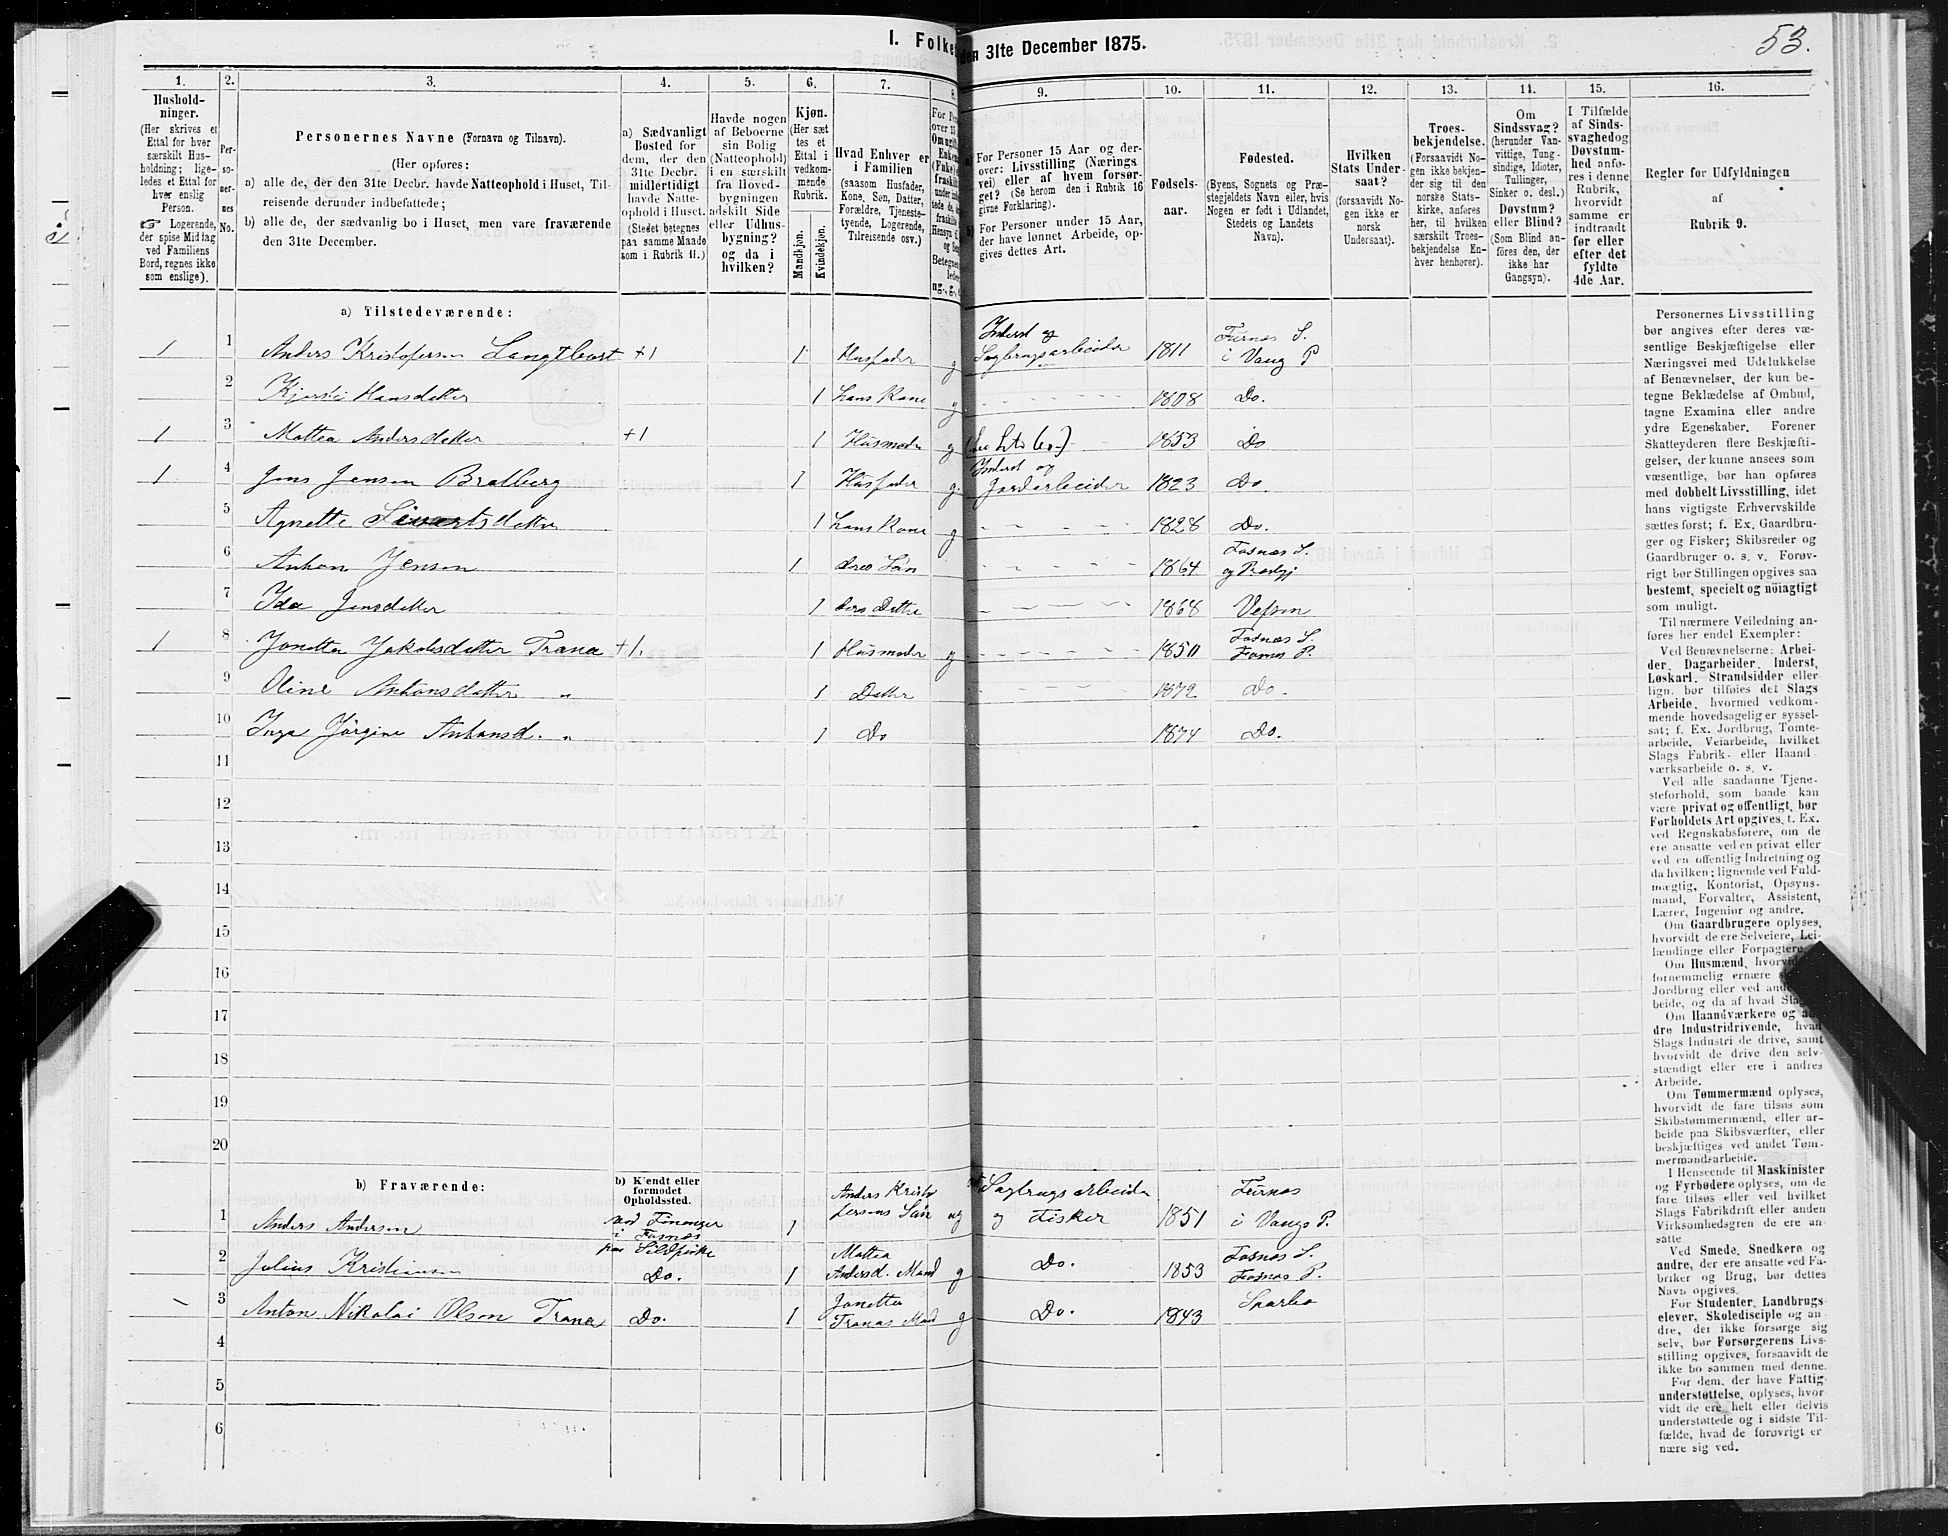 53.
I. Folke
den 31te December 1875.
1.
2.
3.
4.
5.
6.
7.
8
9.
10.
11.
12.
13.
14.
15.
16.
Hushold-
ninger.
(Her skrives et
Ettal for hver
særskilt Hus-
holdning; lige-
ledes et Ettal for
hver enslig
Person.
☞ Logerende,
der spise Middag
ved Familiens
Bord, regnes ikke
som enslige).
Per-
so-
ner-
nes
No.
Personernes Navne (Fornavn og Tilnavn).
(Her opføres:
a) alle de, der den 31te Decbr. havde Natteophold i Huset, Til-
reisende derunder indbefattede;
b) alle de, der sædvanlig bo i Huset, men vare fraværende
den 31te December.
a) Sædvanligt
Bosted for
dem, der den
31te Decbr.
midlertidigt
havde Natte-
ophold i Huset.
(Stedet betegnes
paa samme Maade
som i Rubrik 11.)
Havde nogen
af Beboerne
sin Bolig
(Natteophold)
i en særskilt
fra Hoved-
bygningen
adskilt Side
eller Udhus-
bygning?
og da i
hvilken?
Kjøn.
(Her sæt
tes et
Ettal i
vedkom-
mende
Rubrik.
Mandkjøn.
Kvindekjøn.
Hvad Enhver er
i Familien
(saasom Husfader,
Kone, Søn, Datter,
Forældre, Tjeneste-
tyende, Logerende,
Tilreisende osv.)
For Personer 15 Aar og der-
over: Livsstilling (Nærings
vei) eller af hvem forsør-
get? (Se herom den i Rubrik 16
givne Forklaring).
For Personer under 15 Aar,
der have lønnet Arbeide, op-
gives dettes Art.
Fødsels-
aar.
Fødested.
(Byens, Sognets og Præ-
stegjeldets Navn eller, hvis
Nogen er født i Udlandet,
Stedets og Landets
Navn).
Hvilken
Stats Under-
saat?
(forsaavidt No-
gen ikke er
norsk
Undersaat).
Troes-
bekjendelse.
(Forsaavidt No-
gen ikke bekjen-
der sig til den
norske Stats-
kirke, anføres
her, til hvilken
særskilt Troes-
bekjendelse En-
hver henhører).
Om
Sindssvag?
(herunder Van-
vittige, Tung-
sindige, Idioter,
Tullinger,
Sinker o. desl.)
Døvstum?
eller Blind?
(Som Blind an-
føres den, der
ikke har
Gangsyn).
I Tilfælde
af Sinds-
svaghedog
Døvstum-
hed anfø-
res i denne
Rubrik,
hvorvidt
samme er
indtraadt
før eller
efter det
fyldte
4de Aar.
Regler før Udfyldningen
af
Rubrik 9.
a) Tilstedeværende:
1 1 Anders Kristofersen Langtbost +1 1 Husfader g Inderst og Sagbrugsarbeider 1811 Furnes S. i Vang P
2 Kjersti Hansdatter 1 hans Kone g 1808 Do.
1 3 Mattea Andersdatter +1 1 Husmoder g 1853 Do
1 4 Jens Jensen Bratberg 1 Husfader g. Inderst og Jordarbeider 1823 Do.
5 Agnette Sivertsdatter 1 hans Kone g 1828 Do.
6 Anton Jensen 1 deres Søn 1864 Fosnæs S. og Prestgj
7 Ida Jensdatter 1 deres Datter 1868 Vefsen
1 8 Jonetta Jakobsdatter Trana +1. 1 Husmoder g 1850 Fosnæs S. Fosnæs P.
9 Oline Antonsdatter „ 1 Datter 1872 Do.
10 Inga Jørgine Antonsd. „ 1 Do 1874 Do.
11
12
13
14
15
16
17
18
19
20
b) Fraværende:
b) Kjendt eller
formodet
Opholdssted.
1 Anders Andersen ved Finanger i Fosnæs paa Sildfiske 1 Anders Kristofersens Søn ug Sagbrugsarbeider og Fisker 1851 Furnes i Vangs P.
2 Julius Kristiansen Do. 1 Mattea Andersd. Mand g Do. 1853 Fosnæs S. Fosnæs P.
3 Anton Nikolai Olsen Trana Do. 1 Jonetta Tranas Mand g Do. 1843 Sparbo
4
5
6
Personernes Livsstilling
bør angives efter deres væ-
sentlige Beskjæftigelse eller
Næringsvei med Udelukkelse
af Benævnelser, der kun be-
tegne Beklædelse af Ombud,
tagne Examina eller andre
ydre Egenskaber. Forener
Skatteyderen flere Beskjæfti-
gelser, der kunne ansees som
væsentlige, bør han opføres
med dobbelt Livsstilling, idet
hans vigtigste Erhvervskilde
sættes først; f. Ex. Gaardbru-
ger og Fisker; Skibsreder og
Gaardbruger o. s. v. Forøv-
rigt bør Stillingen opgives saa
bestemt, specielt og nöiagtigt
som muligt.
Til nærmere Veiledning an-
føres her endel Exempler:
Ved Benævnelserne: Arbei-
der, Dagarbeider, Inderst,
Løskarl, Strandsidder eller
lign. bør tilføies det Slags
Arbeide, hvormed vedkom-
mende hovedsagelig er syssel-
sat; f. Ex. Jordbrug, Tomte-
arbeide, Veiarbeide, hvilket
Slags Fabrik- eller Haand-
værksarbeide o. s. v.
Ved alle saadanne Tjene-
steforhold, som baade kan
være privat og offentligt, bør
Forholdets Art opgives, t. Ex.
ved Regnskabsførere, om de
ere ansatte ved en privat eller
ved en offentlig Indretning og
da hvilken; lignende ved Fuld-
mægtig, Kontorist, Opsyns-
mand, Forvalter, Assistent,
Lærer, Ingeniør og andre.
Om Gaardbrugere oplyses,
hvorvidt de ere Selveiere, Lei-
lændinge eller Forpagtere
Om Husmænd, hvorvidt
fornemmelig ernære
Jordbrug eller ved
beide, og da af hvad
Om Haandværkere og
dre Industridrivende, hvad
Slags Industri de drive, samt
hvorvidt de drive den selv-
stændigt eller ere i andres
Arbeide.
Om Tømmermænd oplyses,
hvorvidt de fare tilsøs som
Skibstømmermænd, eller ar-
beide paa Skibsværfter, eller
beskjæftiges ved andet Tøm-
mermandsarbeide.
I Henseende til Maskinister
og Fyrbødere oplyses, om de
fare tilsøs eller ved hvilket
Slags Fabrikdrift eller anden
Virksomhedsgren de ere an-
satte
Ved Smede, Snedkere og
andre, der ere ansatte ved Fa-
briker og Brug, bør dettes
Navn opgives.
For Studenter, Landbrugs-
elever, Skoledisciple og an-
dre, der ikke forsørge sig
selv, bør Forsørgerens Livs-
stilling opgives, forsaavidt de
ikke bo sammen med denne.
For dem, der have Fattig-
understøttelse, oplyses, hvor-
vidt de ere helt eller delvis
understøttede og i sidste Til-
fælde, hvad de forøvrigt er
nære sig ved.